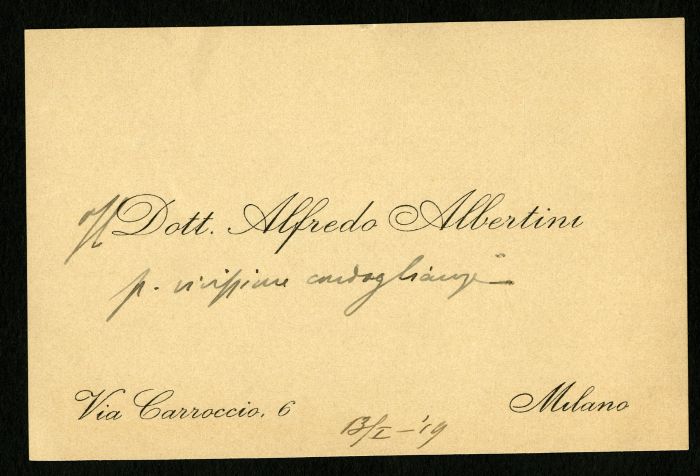 Il Dott. Alfredo Albertini
p. vivissime condoglianze
Via Carroccio, 6
Milano
13/I-'19